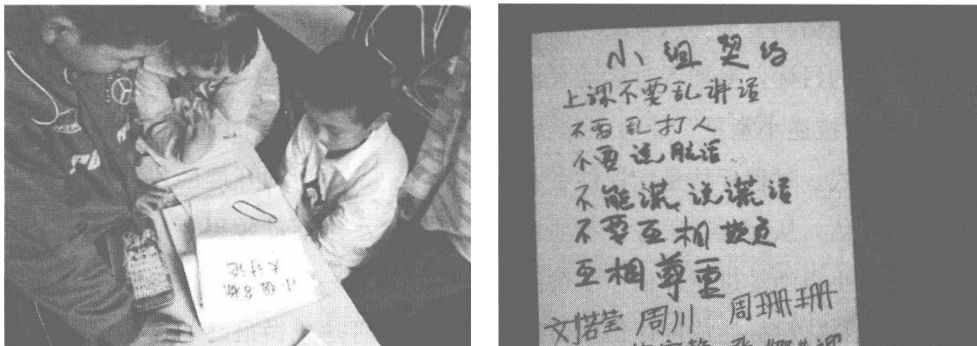 小组名称
大讨论
小组契约
上课不要乱讲话
不要乱打人
不要说脏话
不能谎,说谎话
不要互相欺负
互相尊重
文偌莹 周川 周珊珊